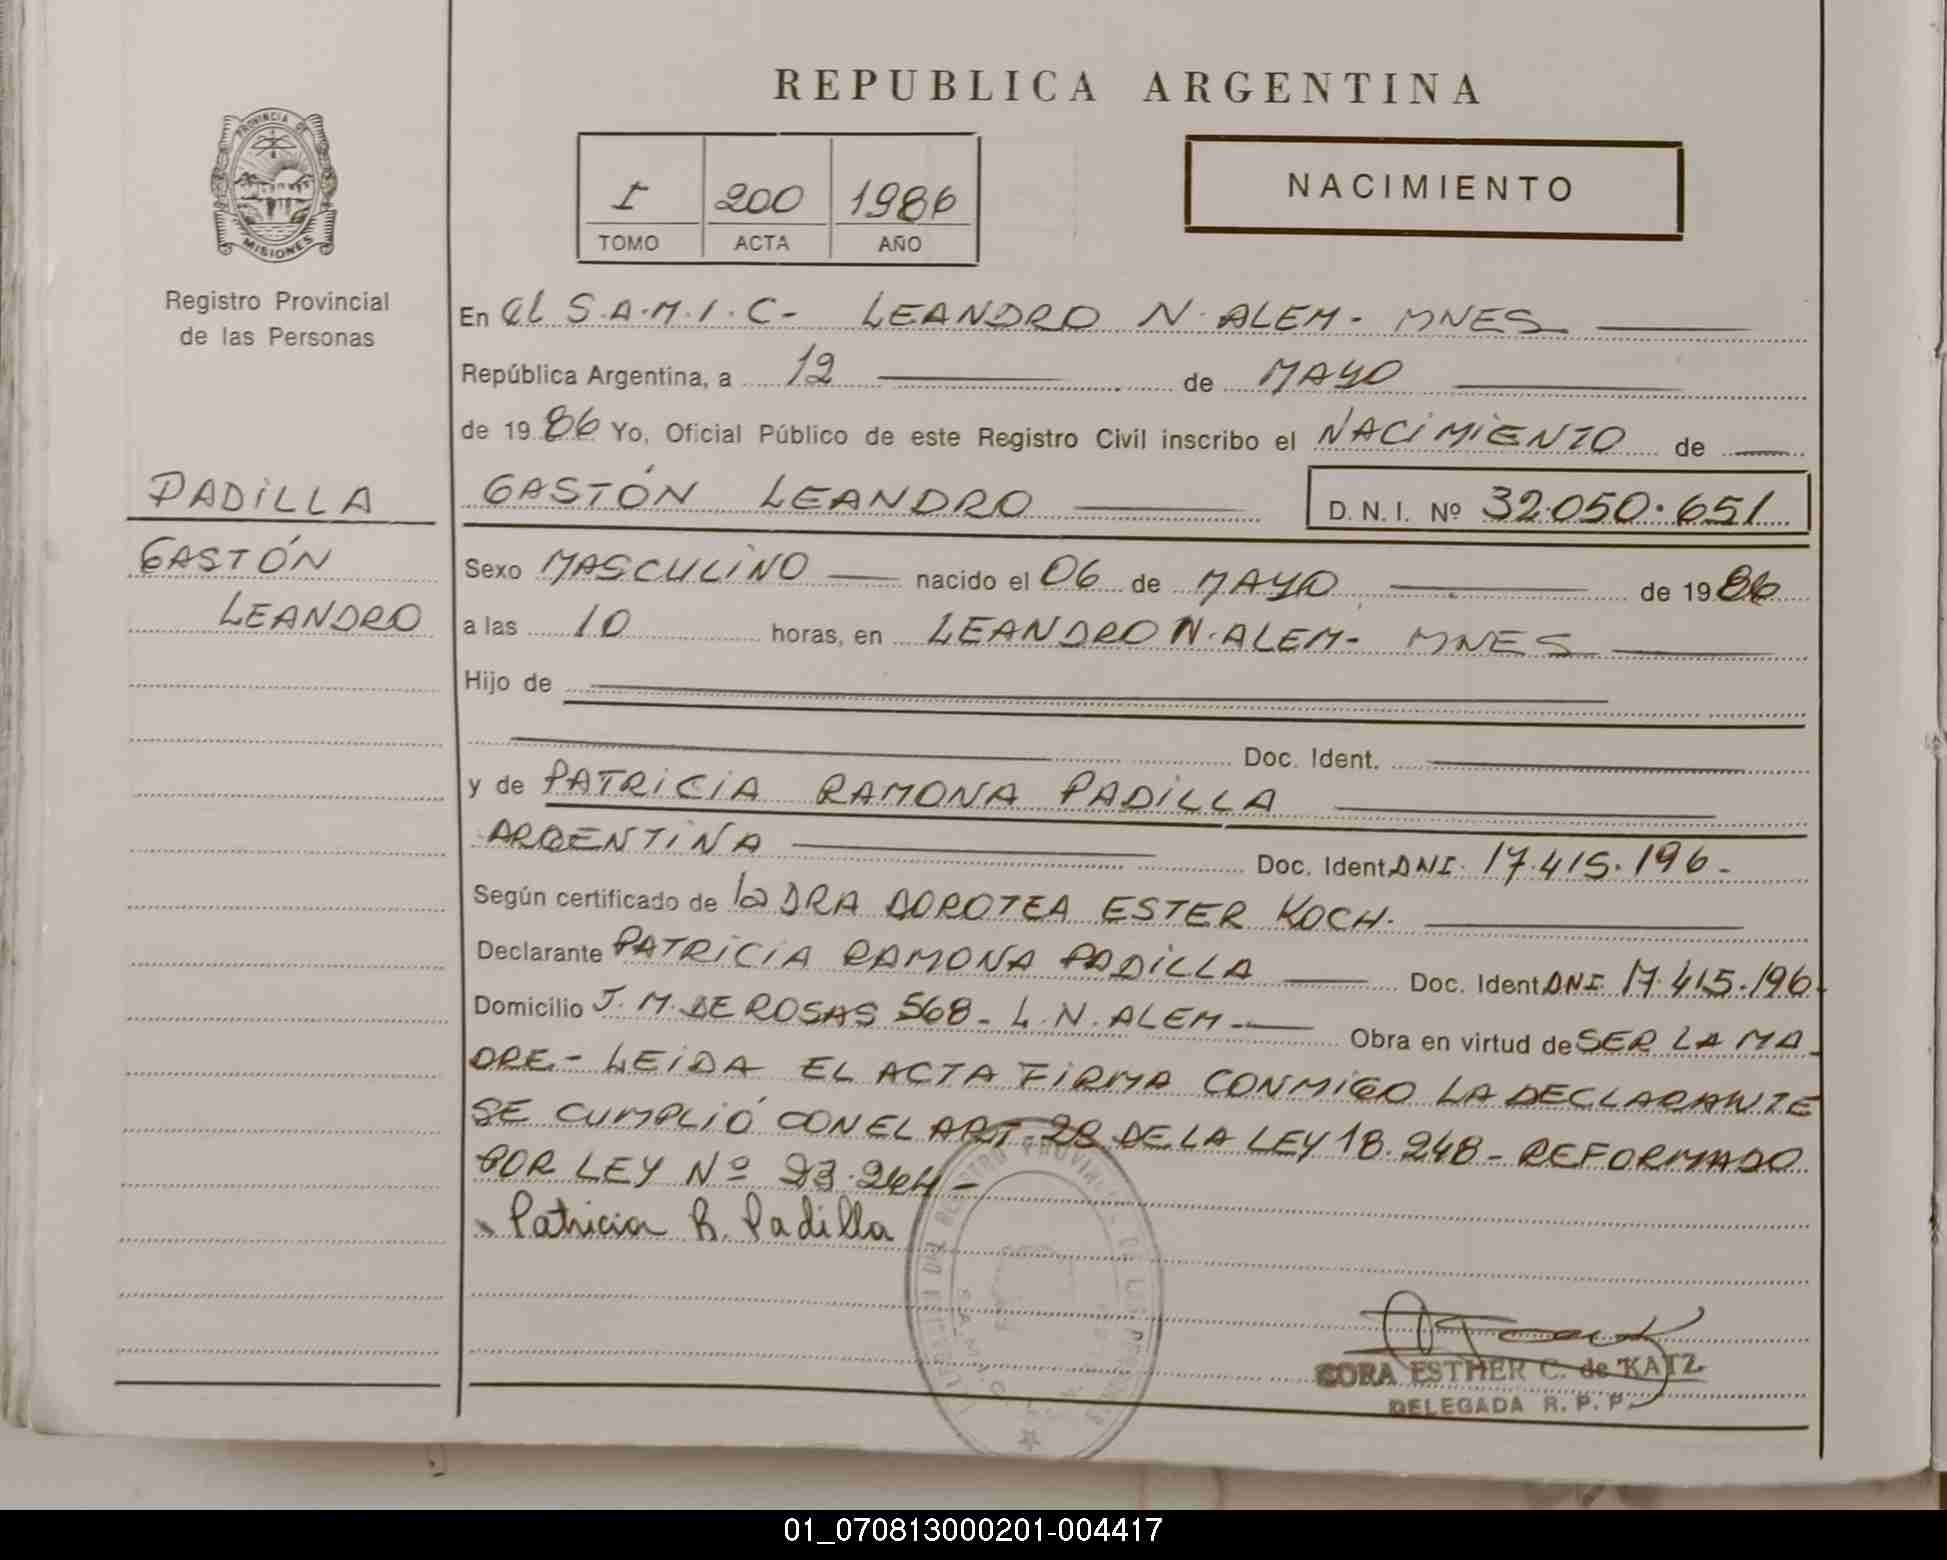 REPUBLICA ARGENTINA
PROVINCIA DE
MISIONES
Registro Provincial
de las Personas
I 200 1986
TOMO ACTA AÑO
NACIMIENTO
En el S.A.M.I.C- LEANDRO N. ALEM- MNES
República Argentina, a 12 de MAYO
de 1986 Yo, Oficial Público de este Registro Civil inscribo el NACIMIENTO de
PADILLA
GASTÓN LEANDRO D.N.I. Nº 32.050.651
GASTÓN
LEANDRO
Sexo MASCULINO nacido el 06 de MAYO de 1986
a las 10 horas, en LEANDRO N. ALEM- MNES
Hijo de
Doc. Ident.
y de PATRICIA RAMONA PADILLA
ARGENTINA Doc. Ident. DNI. 17.415.196-
Según certificado de la DRA DOROTEA ESTER KOCH.
Declarante PATRICIA RAMONA PADILLA Doc. Ident. DNI 17.415.196.
Domicilio J. M. DE ROSAS 568- L.N. ALEM- Obra en virtud de SER LA MA-
DRE.- LEIDA EL ACTA FIRMA CONMIGO LA DECLARANTE
SE CUMPLIÓ CON EL ART. 28 DE LA LEY 18.248- REFORMADO
POR LEY Nº 23.264-
Patricia R. Padilla
CORA ESTHER C. de KATZ
DELEGADA R. P. P.
01_070813000201-004417